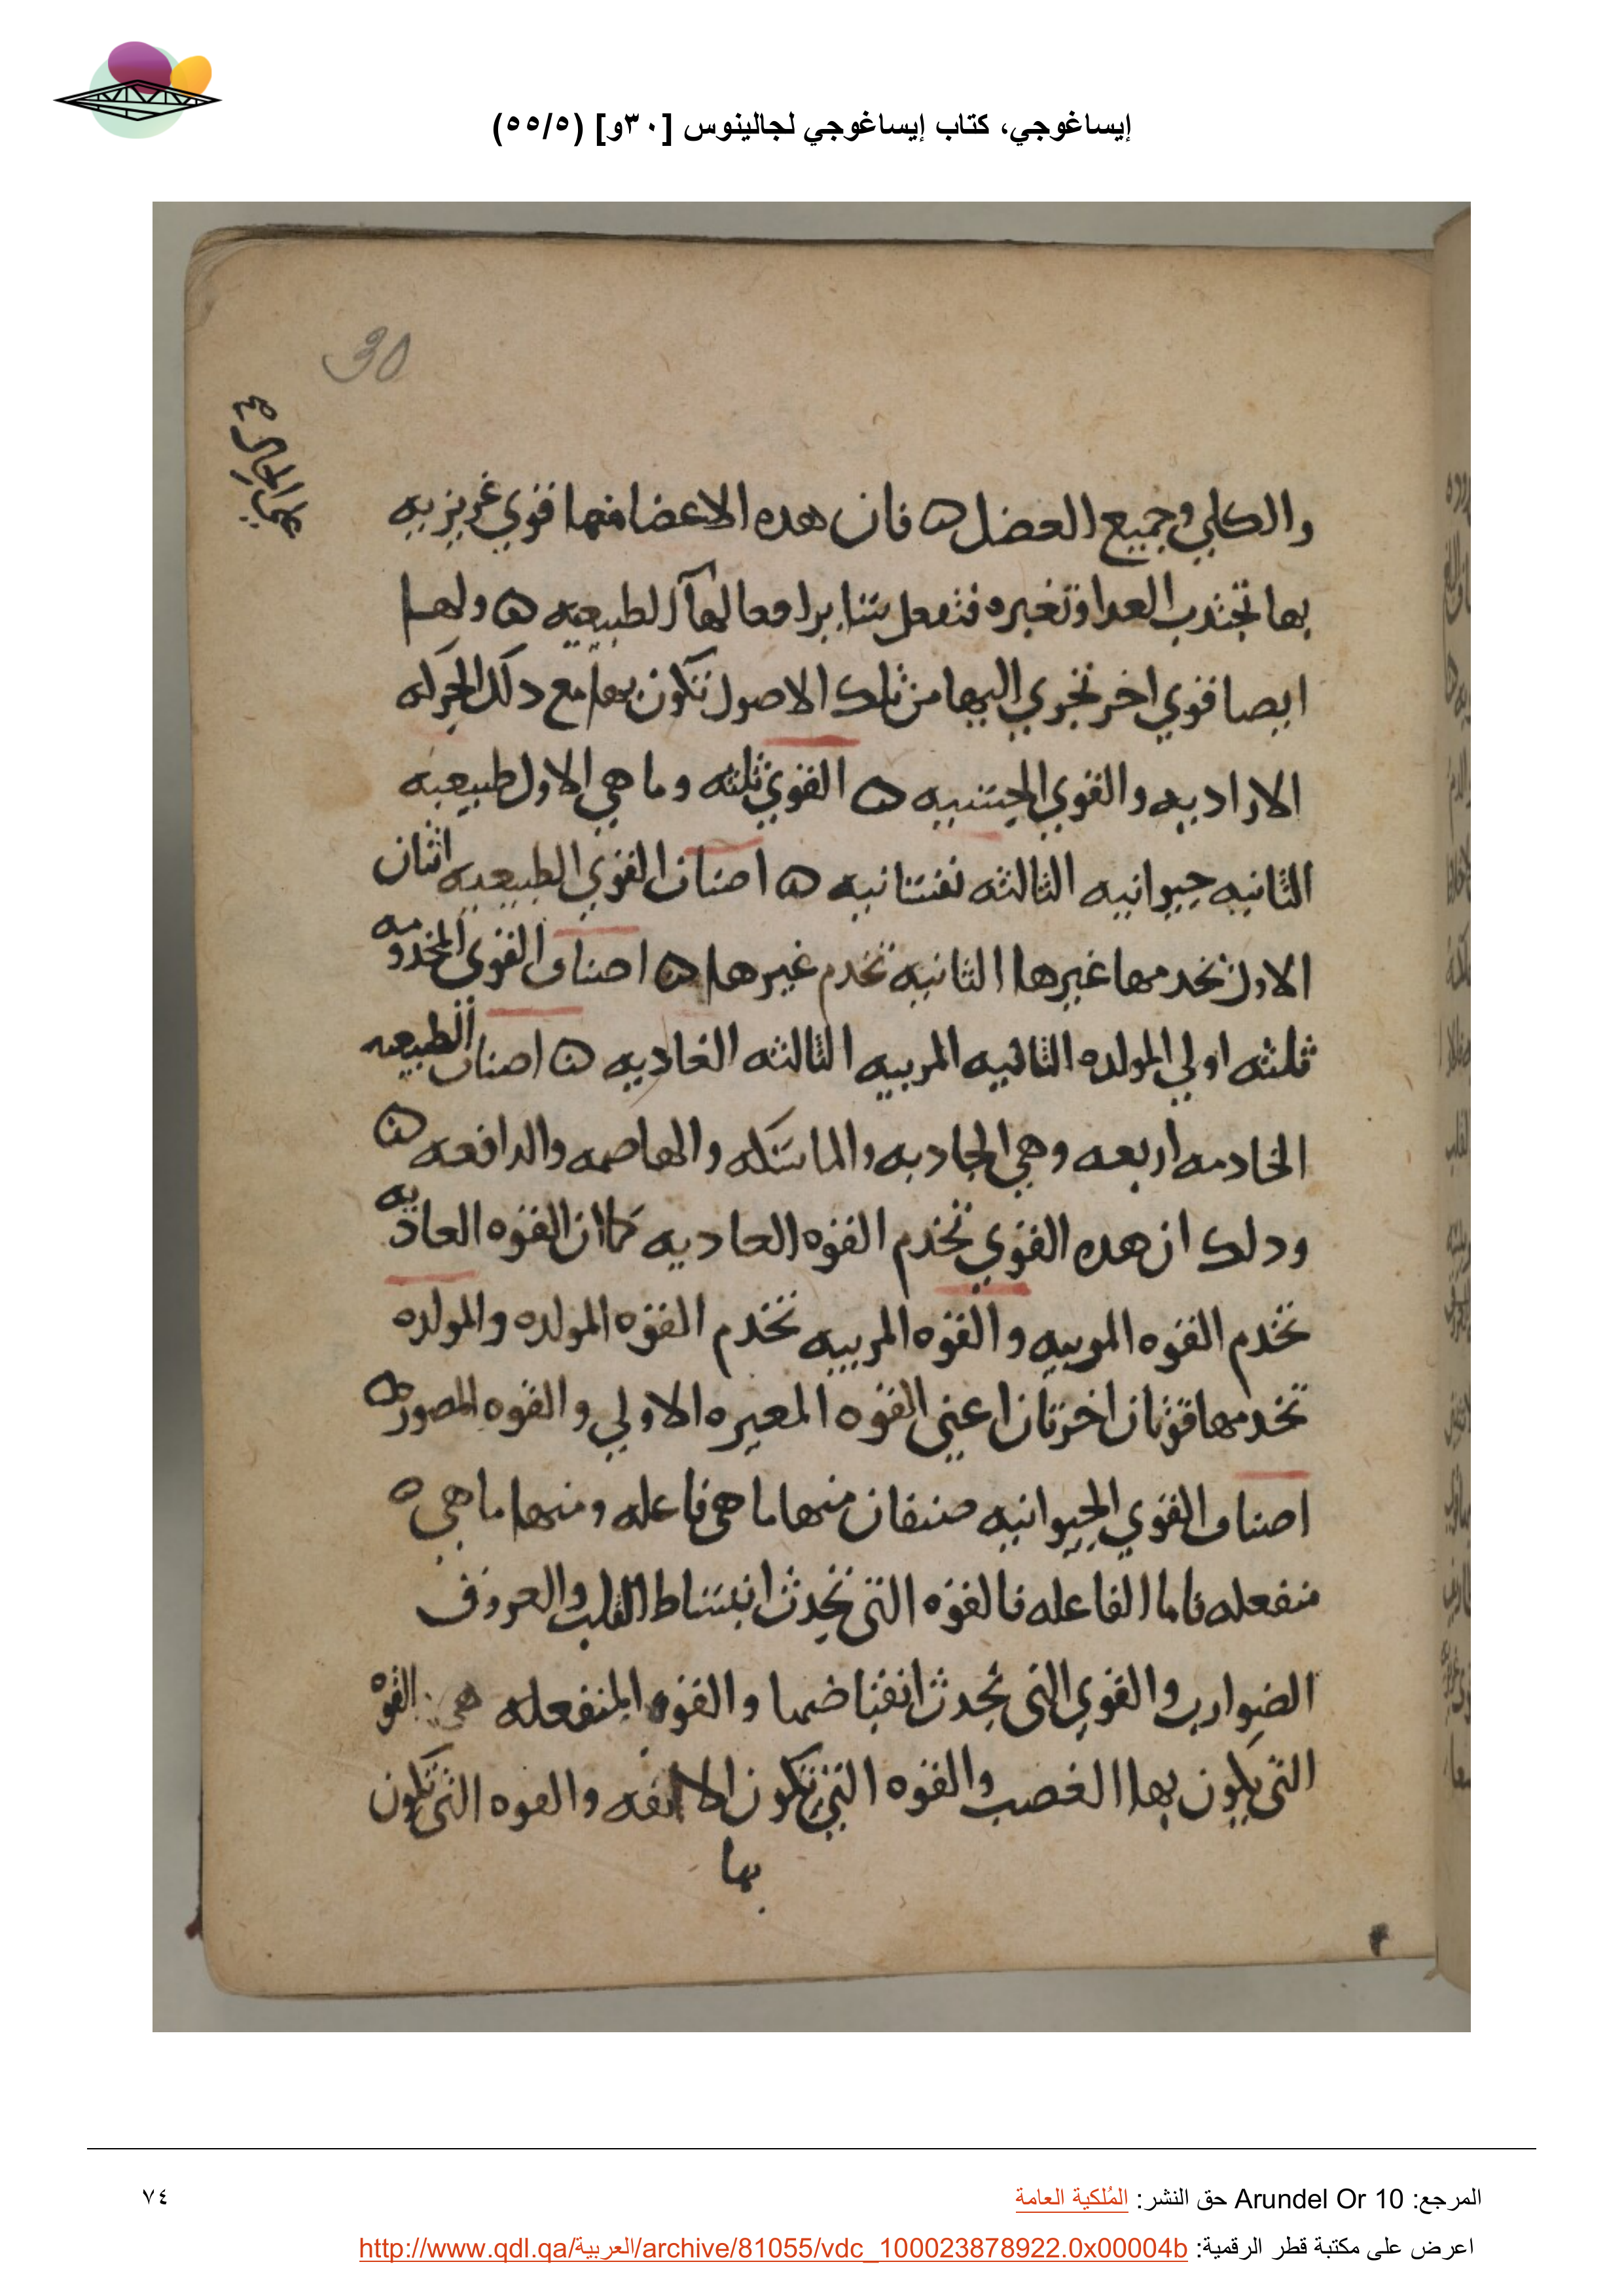 إيساغوجي، كتاب إيساغوجي لجالينوس [٣٠و] (٥٥/٥)
30
والكلي وجميع العضل ه فان هده الاعضا فيها قوي غريزيه
بها تجتدب العدا وتغيره فتفعل بتنابرا فعالها الطبيعيه ه ولها
ايصا قوي اخر تجري اليها من تلك الاصول تتكون بها مع دلك الحركه
الاراديه والقوي الحسيه ه القوي ثلثه وما هي الاول طبيعيه
الثانيه حيوانيه الثالثه نفسانيه ه اصناف القوي الطبيعيه اثنان
الاول تخدمها غيرها الثانيه تخدم غيرها ه اصناف القوي المخدومه
ثلثه اولي المولده الثانيه المربيه الثالثه الغاديه ه اصناف الطبيعيه
الخادمه اربعه وهي الجادبه والماسكه والهاصمه والدافعه ه
ودلك ان هده القوي تخدم القوه العاديه كما ان القوه العاديه
تخدم القوه المربيه والقوه المربيه تخدم القوه المولده والمولده
تخدمها قوتان اخرتان اعني القوه المعيره الاولي والقوه المصوره
اصناف القوي الحيوانيه صنفان منها ما هي فاعله ومنها ما هي ه
منفعله فاما الفاعله فالقوه التي تحدث انبساط القلب والعروق
الضوارب والقوي التي تحدث انقباضها والقوه المنفعله هي القوه
التي يكون بها الغصب والقوه التي تكون الانفه والقوه التي تكون
بها
المرجع: Arundel Or 10 حق النشر: المُلكية العامة
٧٤
اعرض على مكتبة قطر الرقمية: http://www.qdl.qa/العربية/archive/81055/vdc_100023878922.0x00004b